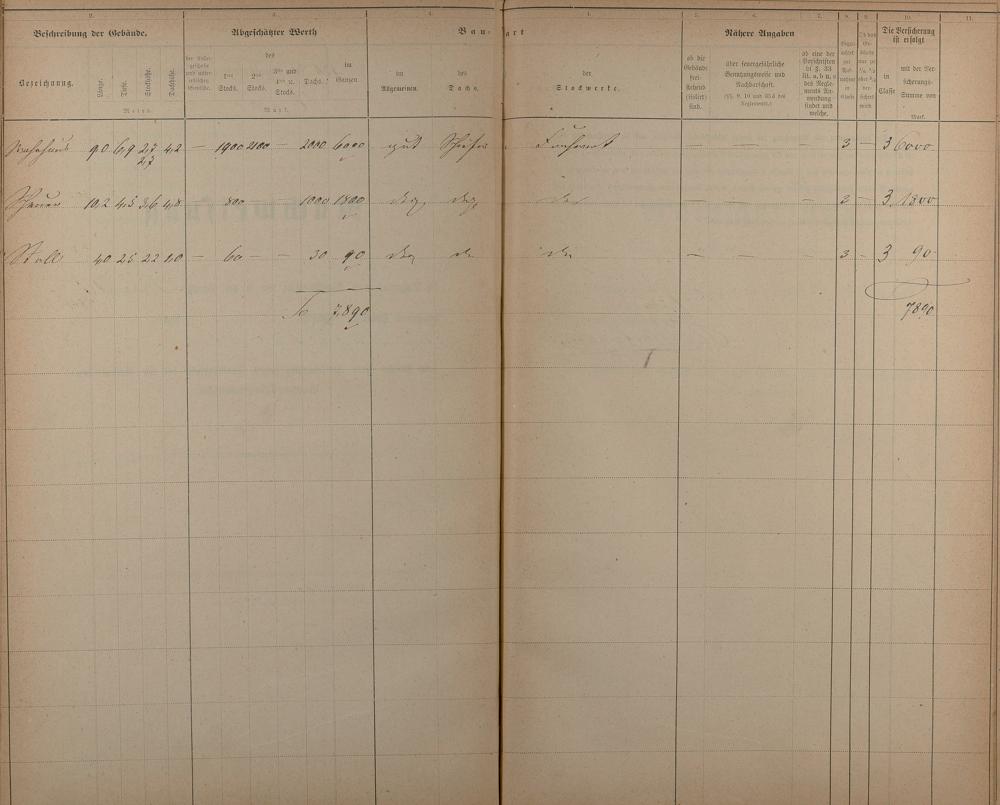 2. 3. 4. 4. 5. 6. 7. 8. 9. 10. 11.
Beschreibung der Gebäude. Abgeschätzter Werth Bau- art Nähere Angaben Die Versicherung ist erfolgt
Bezeichnung. Länge. Tiefe. Stockhöhe. Dachhöhe. des 1ten Stocks. 2ten Stocks. 3ten und 4ten u. Stocks. Dachs. im Ganzen. im Allgemeinen. des Dachs. der Stockwerke. ob die Gebäude frei- stehend (isoliert) sind. über feuergefährliche Benutzungsweise und Nachbarschaft. ob eine der Vorschriften in Z. 33 lit. a, b, c des Regle- ments An- wendung findet und welche. in Classe mit der Ver- sicherungs- Summe von
Meter. Mark. Mark.
Wohnhaus 9,0 6,9 2,7 4,2 — 1900 2100 — 2000 6000 gut Schiefer Fachwerk — — — 3 — 3 6000
2,3
Scheuer 10,2 4,5 3,6 4,8 — 800 — — 1000 1800 — — — 3 — 3 1800
Stall 4,0 2,5 2,2 1,0 — 60 — — 30 90 — — 3 — 3 90
7,890 7890